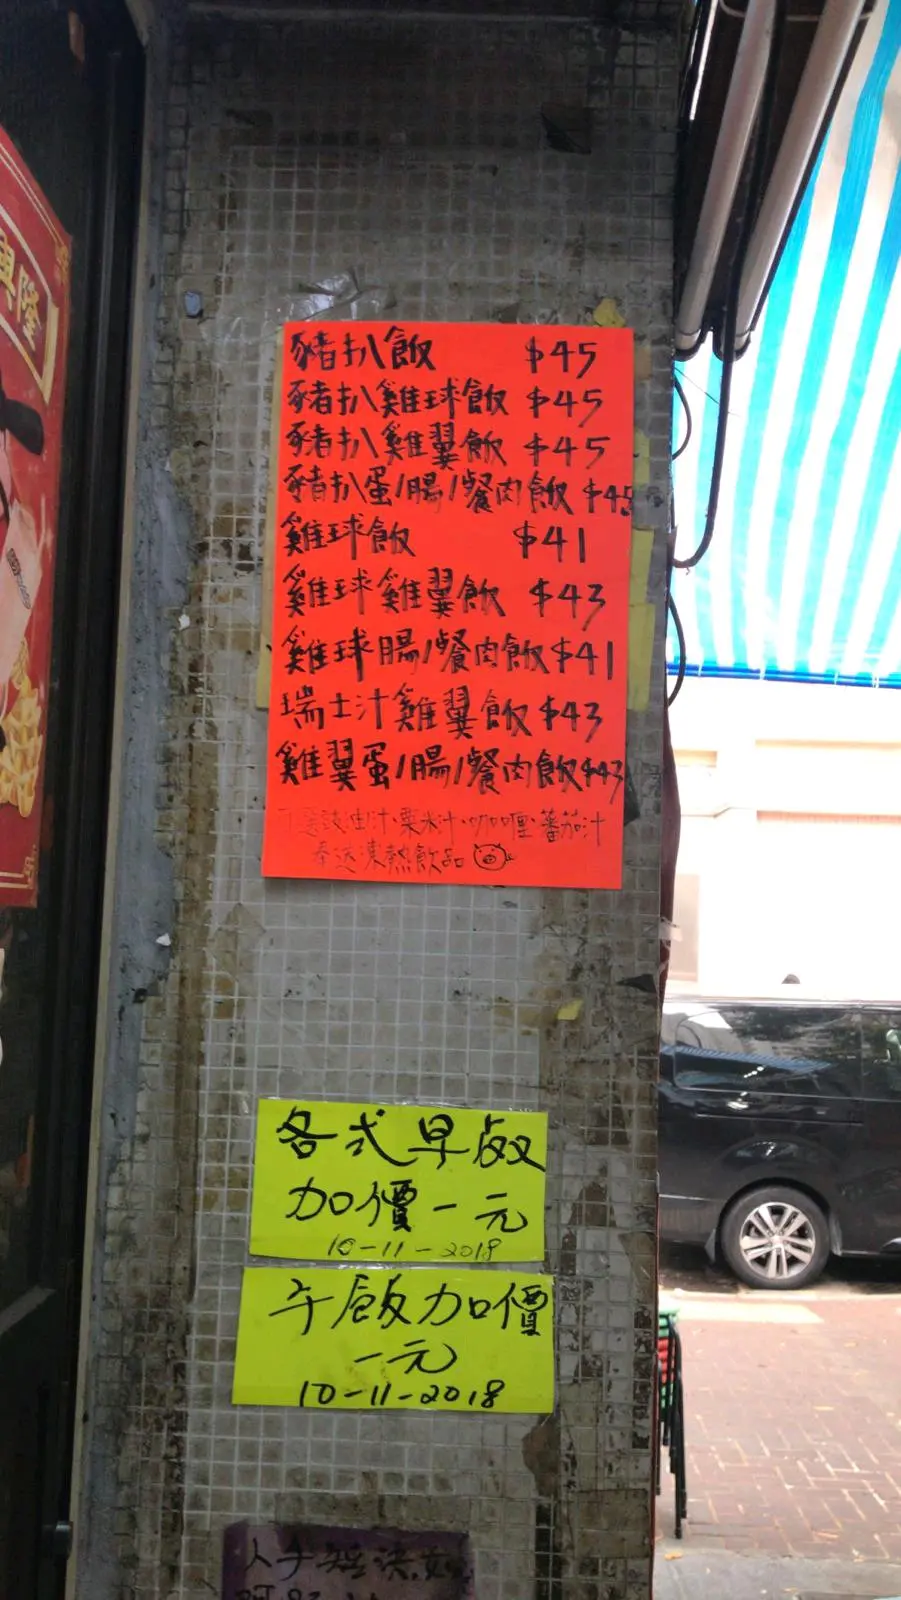 興隆
豬扒飯 $45
豬扒雞球飯 $45
豬扒雞翼飯 $45
豬扒蛋/腸/餐肉飯 $45
雞球飯 $41
雞球雞翼飯 $43
雞球腸/餐肉飯 $41
瑞士汁雞翼飯 $43
雞翼蛋/腸/餐肉飯 $43
可選豉油汁、粟米汁、咖喱、蕃茄汁
奉送凍熱飲品
各式早飯
加價一元
10-11-2018
午飯加價
一元
10-11-2018
人手短決